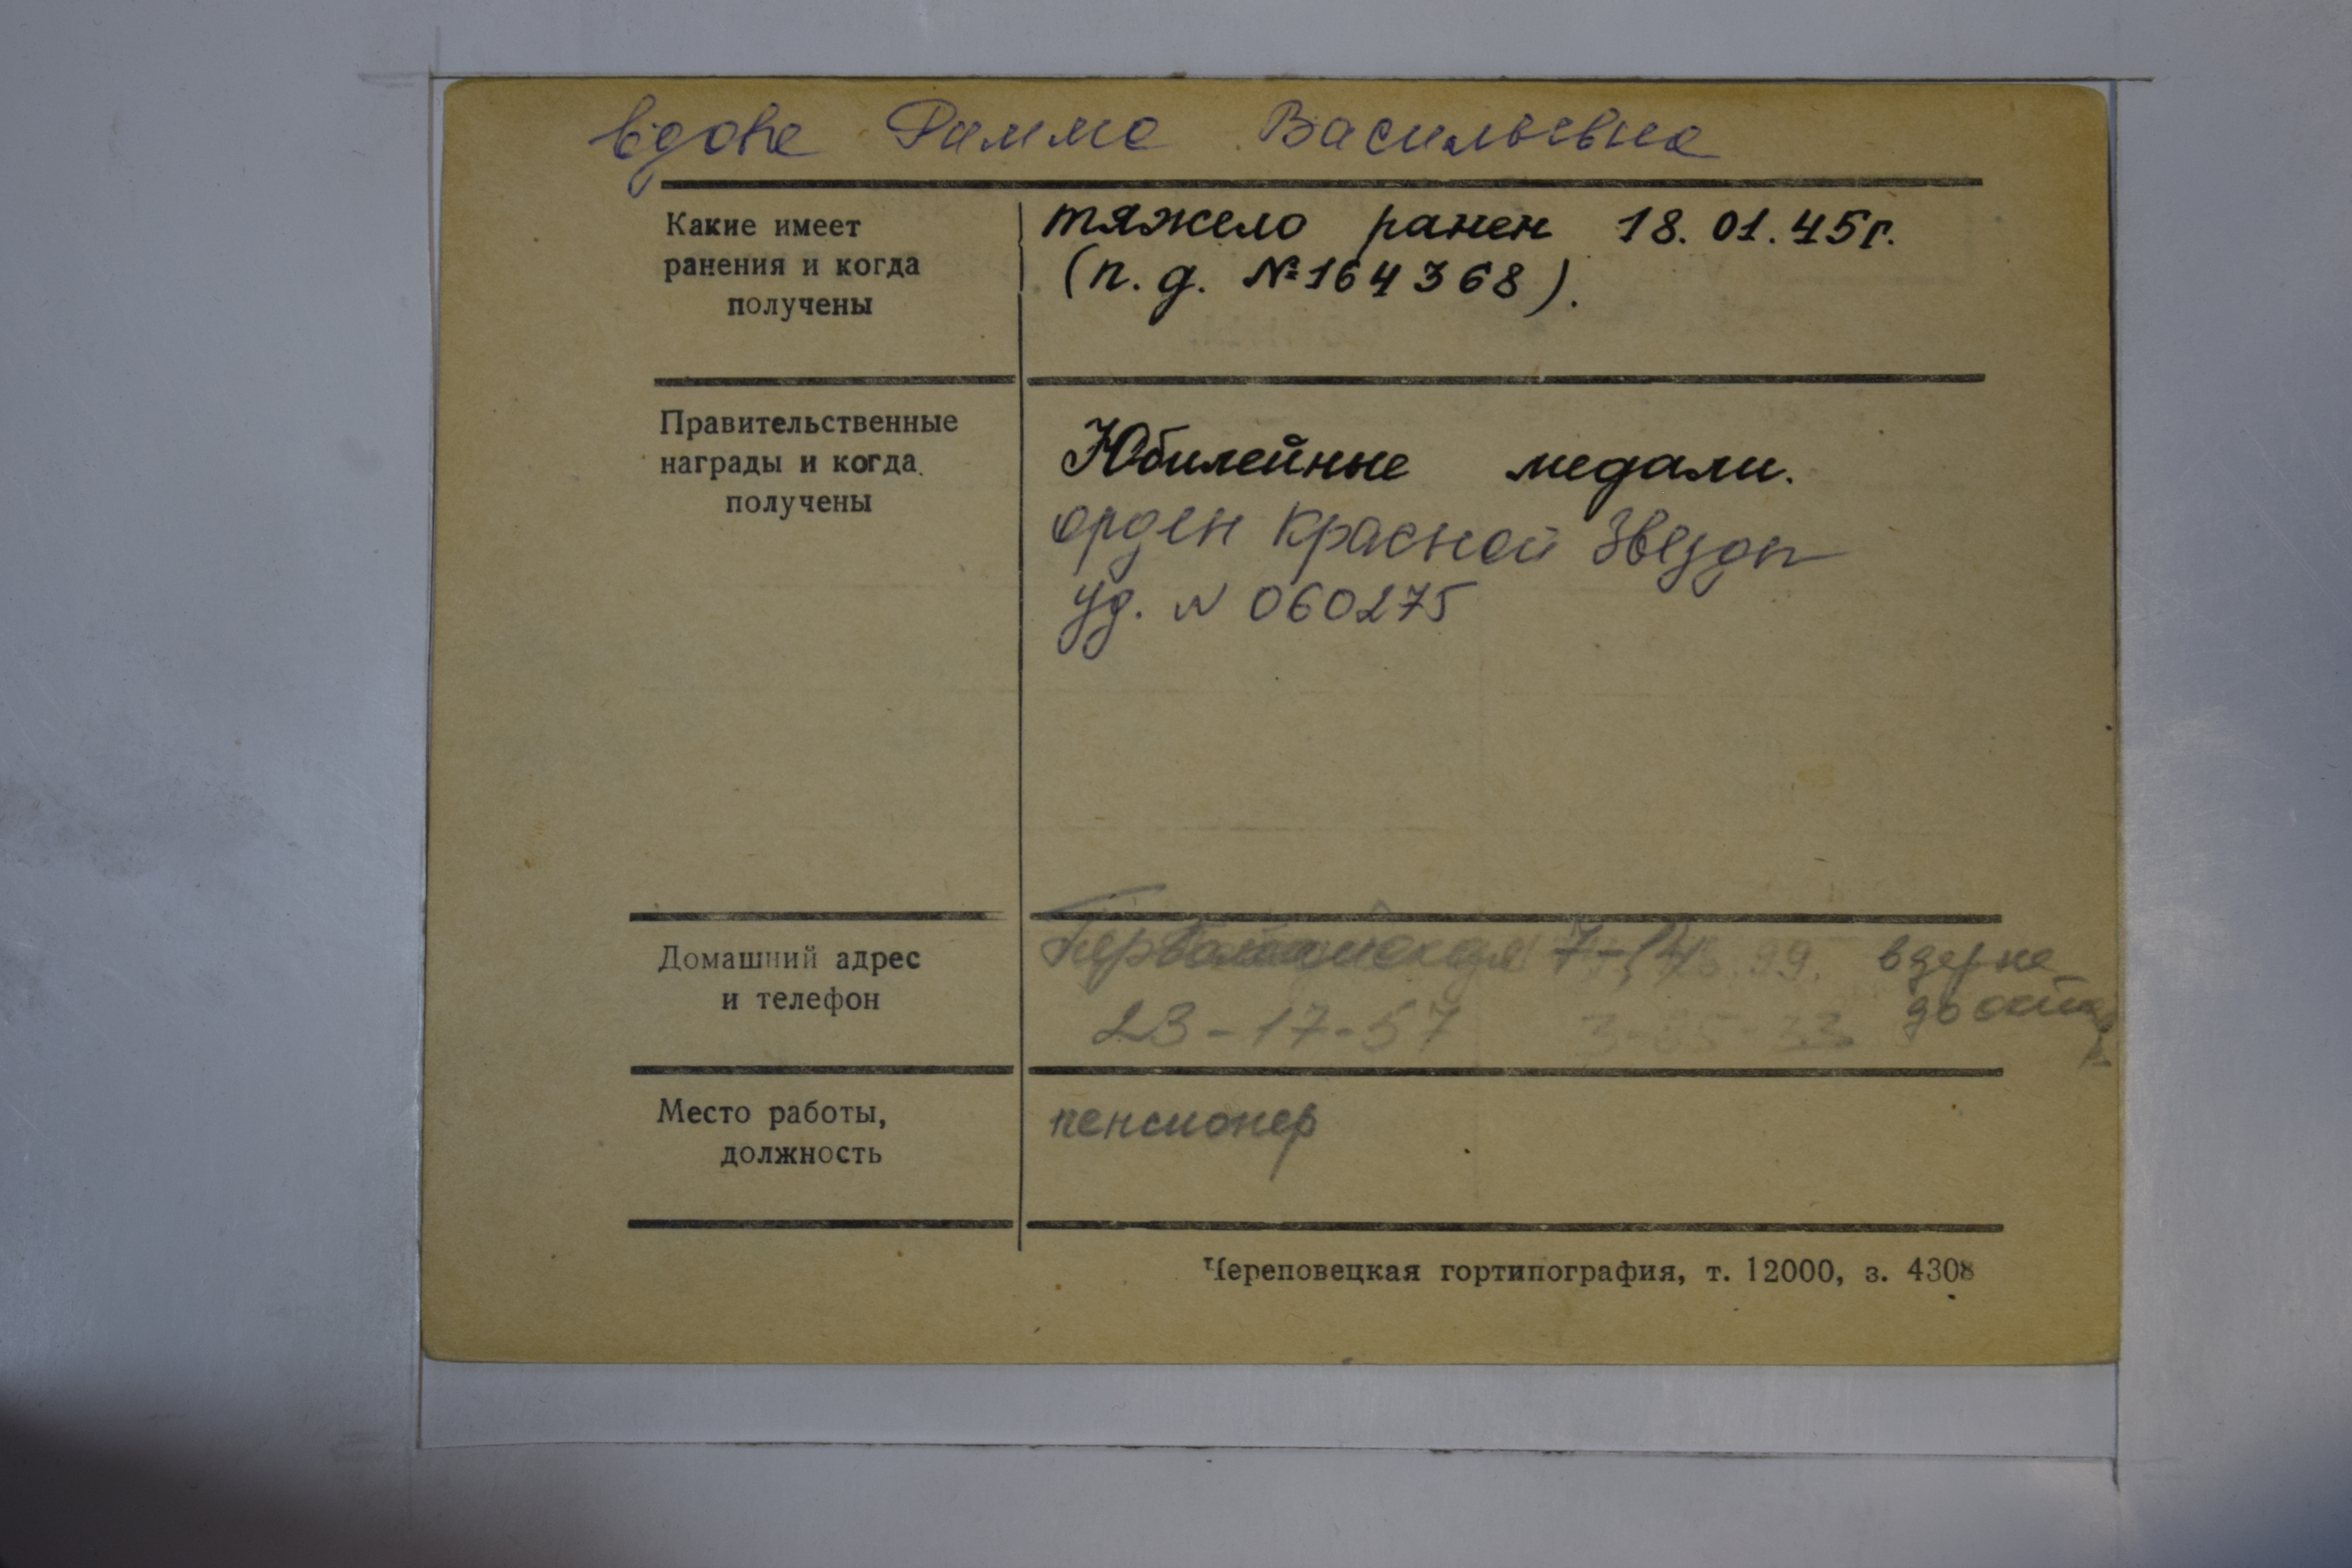 вдова Римма Васильевна
Какие имеет
ранения и когда
получены
тяжело ранен 18.01.45г.
(п.д. №164368).
Правительственные
награды и когда
получены
Юбилейные медали.
орден Красной Звезды
уд. N 060275
Домашний адрес
и телефон
Первомайская 7-14
23-17-57 3-05-33
Место работы,
должность
пенсионер
Череповецкая гортипография, т. 12000, з. 4308